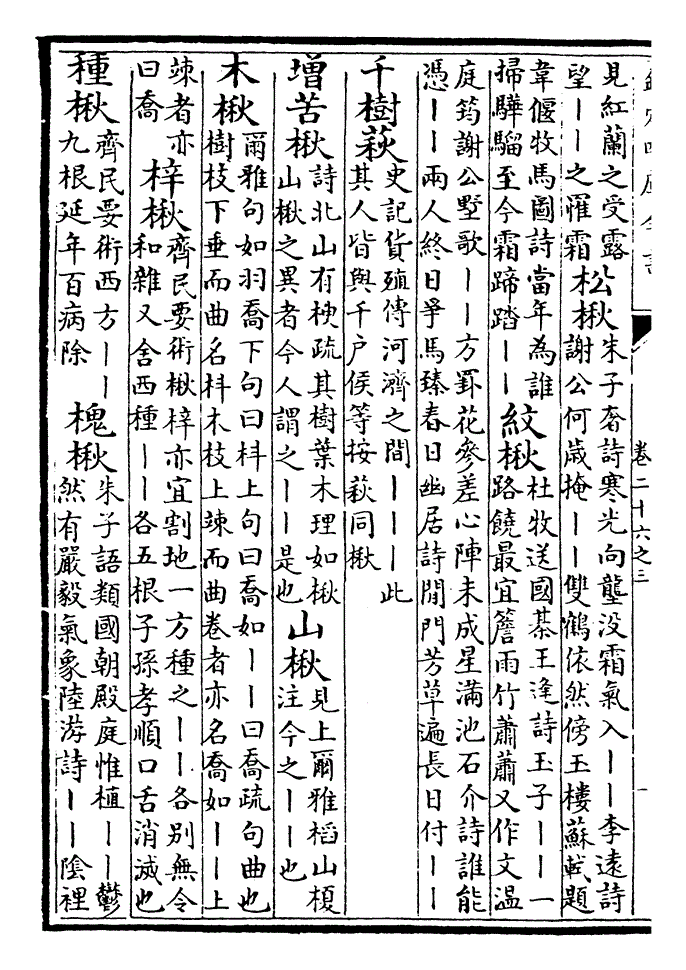 欽定四庫全書
卷二十六之三
見紅蘭之受露
望丨丨之罹霜
松楸
朱子奢詩寒光向壟没霜氣入丨丨李遠詩
謝公何歲掩丨丨雙鶴依然傍玉樓蘇軾題
韋偃牧馬圖詩當年為誰
掃驊騮至今霜蹄踏丨丨
紋楸
杜牧送國棊王逢詩玉子丨丨一
路饒最宜簷雨竹蕭蕭又作文温
庭筠謝公墅歌丨丨方罫花參差心陣未成星滿池石介詩誰能
憑丨丨兩人終日爭馬臻春日幽居詩閒門芳草遍長日付丨丨
千樹萩
史記貨殖傳河濟之間丨丨丨此
其人皆與千户侯等按萩同楸
增苦楸
詩北山有楰疏其樹葉木理如楸
山楸之異者今人謂之丨丨是也
山楸
見上爾雅槄山榎
注今之丨丨也
木楸
爾雅句如羽喬下句曰朻上句曰喬如丨丨曰喬疏句曲也
樹枝下垂而曲名朻木枝上竦而曲卷者亦名喬如丨丨上
竦者亦
曰喬
梓楸
齊民要術楸梓亦宜割地一方種之丨丨各别無令
和雜又舍西種丨丨各五根子孫孝順口舌消滅也
種楸
齊民要術西方丨丨
九根延年百病除
槐楸
朱子語類國朝殿庭惟植丨丨鬱
然有嚴毅氣象陸游詩丨丨陰裡